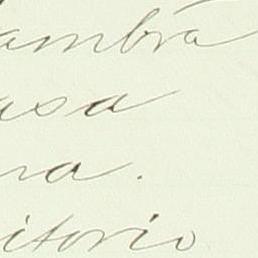 ambra
asa
na.
itorio